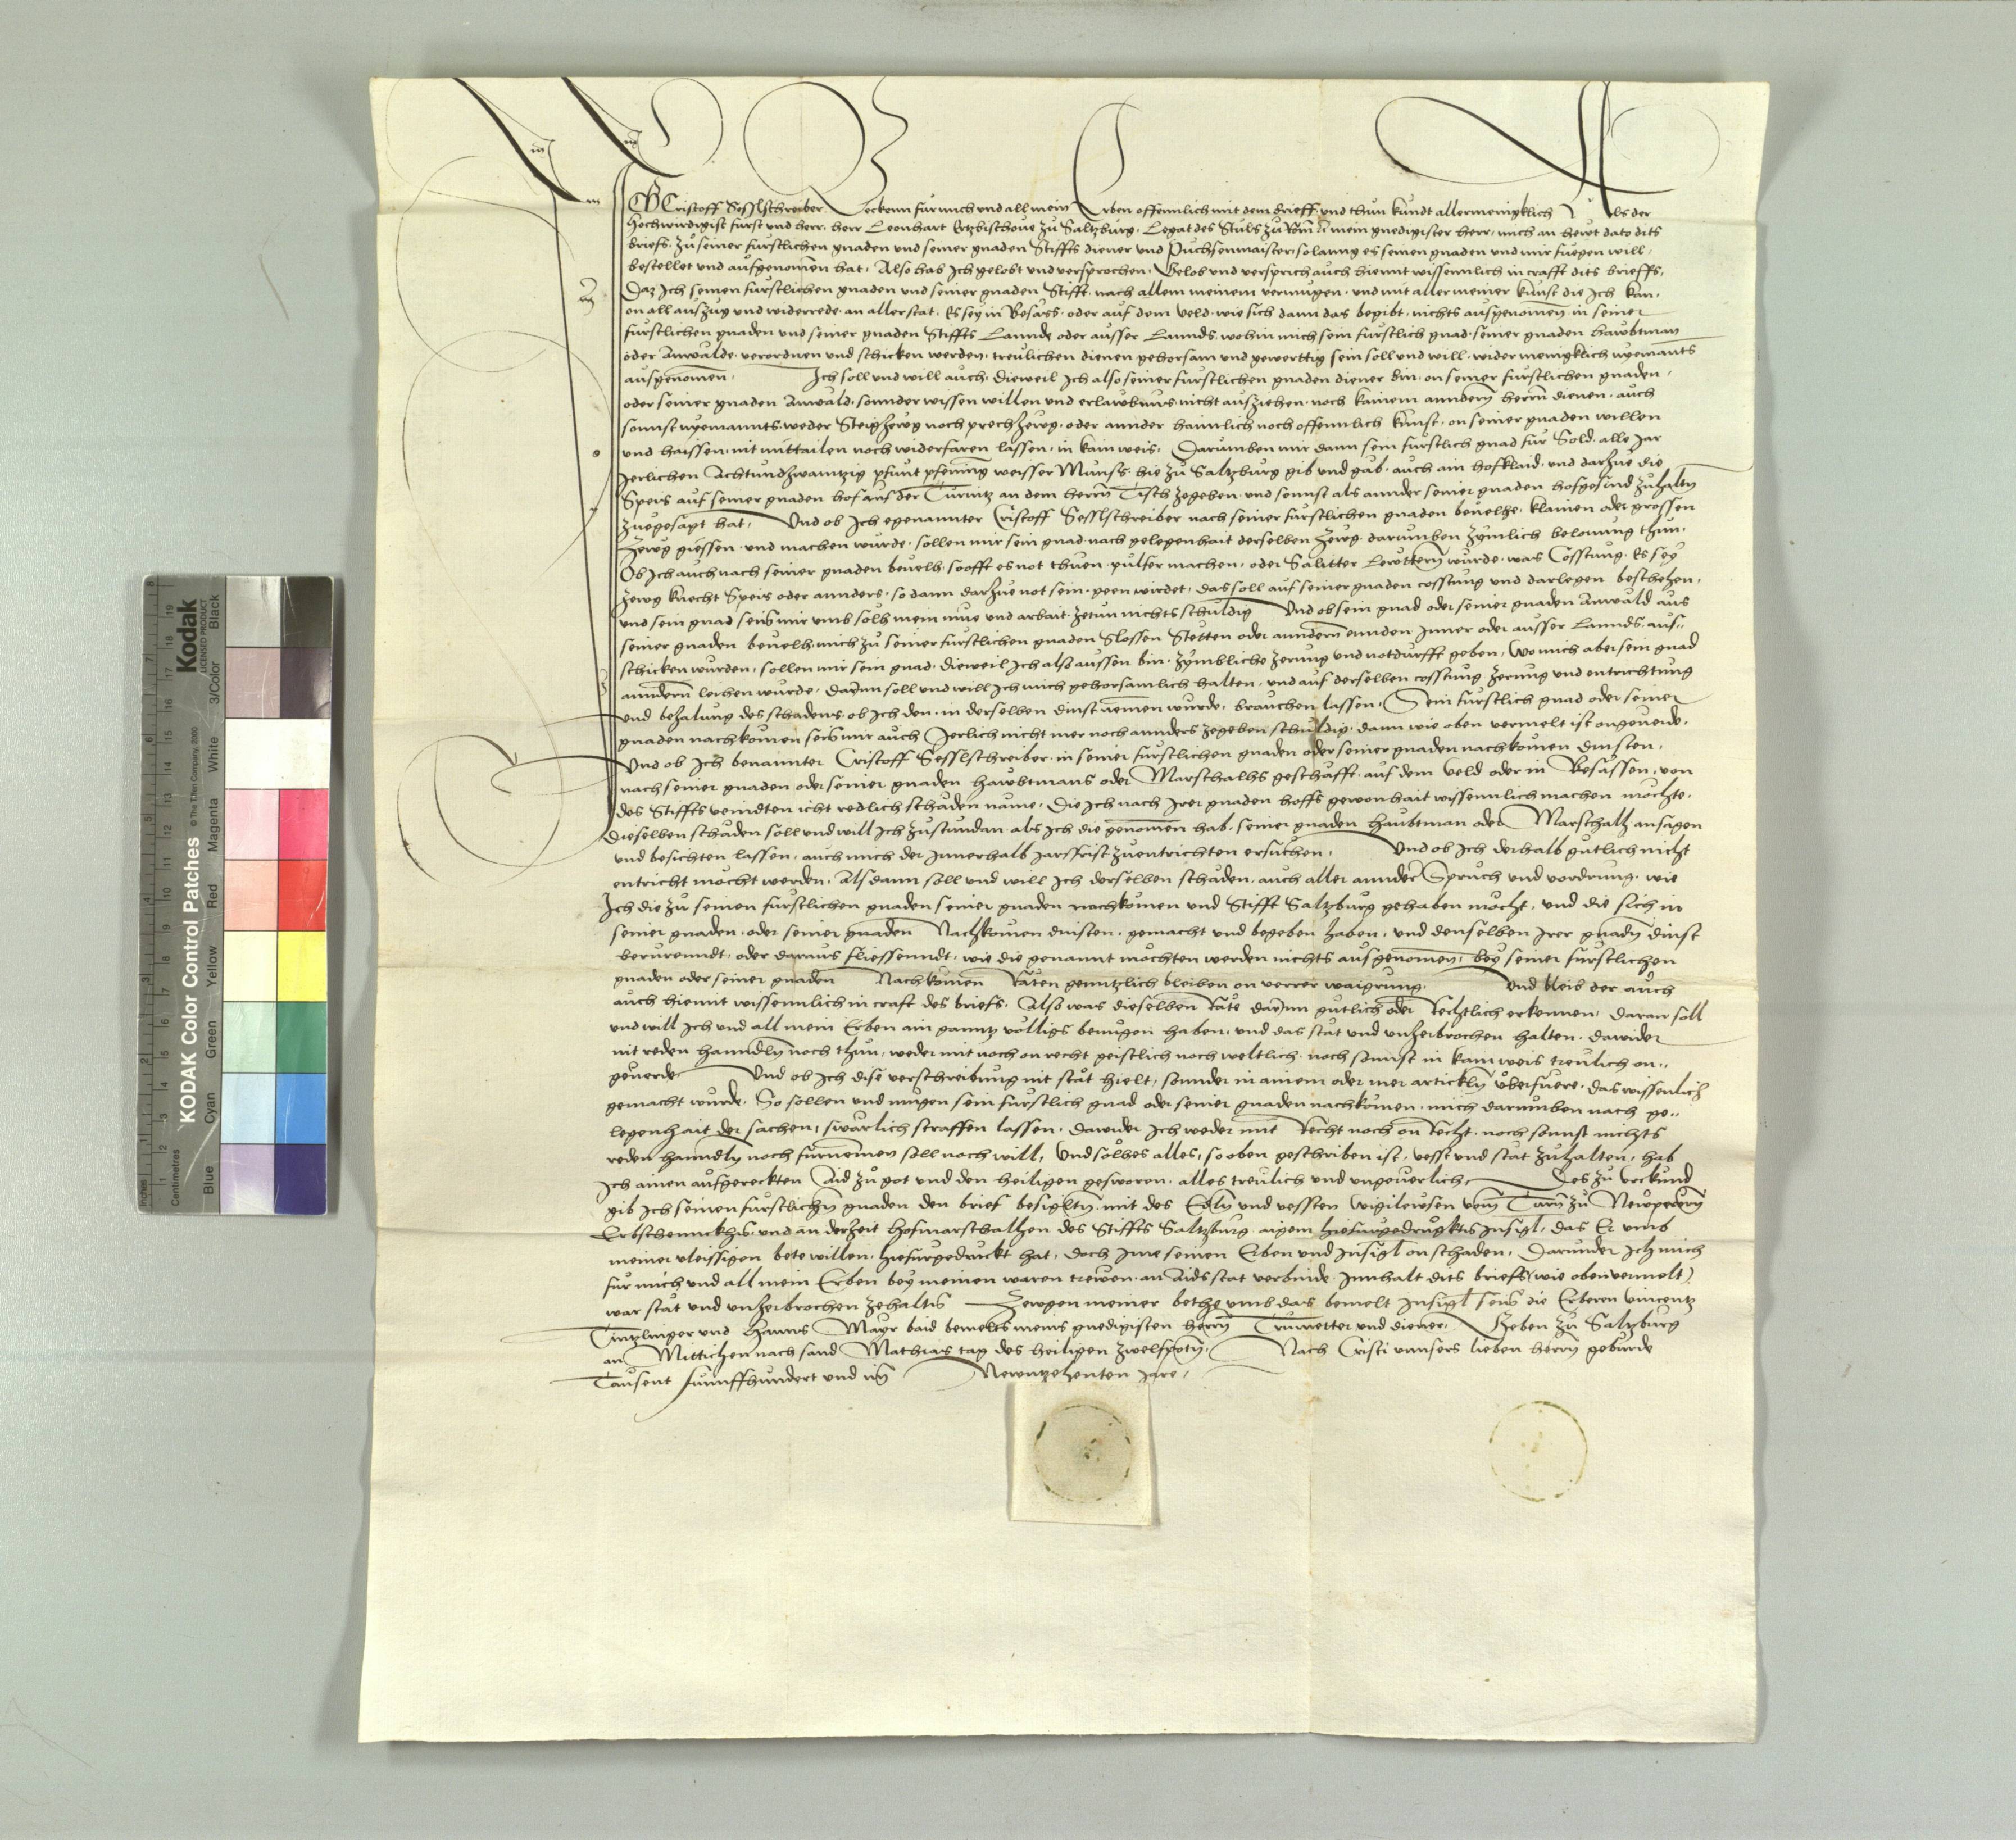 Ich Cristoff Sesslschreiber Bekenn fur mich und all mein Erben offennlich mit dem brieff und thun kundt allermenigklich Als der
Hochwirdigist furst und herr, herr Leonhart Ertzbischove zu Saltzburg, Legat des Stuls zu Rom mein gnedigister herr, mich an hewt dato dits
briefs, zu seiner furstlichen gnaden und seiner gnaden Stiffts diener und Puchsenmaister, solanng es seinen gnaden und mir fuegen will,
bestellet und aufgenomen hat, Also hab Ich gelobt und versprochen, Gelob und versprich auch hiemit wissennlich in crafft dits brieffs,
Daz Ich seinen furstlichen gnaden und seiner gnaden Stifft, nach allem meinem vermugen, und mit aller meiner kunst die Ich kan,
on all auszug und widerrede, an aller stat, Es sey in Besäss, oder auf dem veld, wie sich dann das begibt, nichts ausgenomen, in seiner
furstlichen gnaden und seiner gnaden Stiffts Lannde oder ausser Lannds, wohin mich sein furstlich gnad, seiner gnaden hawbtman
oder Anwälde, verordnen und schicken werden, treulichen dienen gehorsam und gewerttig sein soll und will, wider menigklich nyemants
ausgenomen, Ich soll und will auch, dieweil Ich also seiner furstlichen gnaden diener bin, on seiner furstlichen gnaden,
oder seiner gnaden Anwäld, sonnder wissen willen und erlawbnus, nicht ausziehen, noch kainem anndern herrn dienen, auch
sonnst nyemannts weder Steigzewg noch prechzewg, oder annder haimlich noch offennlich kunst, on seiner gnaden willen
und haissen, nit mittailen noch widerfaren lassen, in kain weis, Darumben mir dann sein furstlich gnad fur Sold, alle Jar
Jerlichen Achtundzwaintzig pfunt pfening weisser Munss, hie zu Saltzburg gib und gab, auch ain hofklaid, und darzue die
Speis auf seiner gnaden hof auf der Turnitz an dem herrn Tisch zegeben, und sonnst als annder seiner gnaden hofgesind zuhaltn
zuegesagt hat, Und ob Ich egenannter Cristoff Sesslschreiber nach seiner furstlichen gnaden bevelhe, klainen oder grossen
Zewg giessen und machen wurde, sollen mir sein gnad, nach gelegenhait derselben Zewg, darumben zymlich belonung thun,
Ob Ich auch nach seiner gnaden bevelh, so offt es not thuen, pulfer machen, oder Saliter Lewttern wurde, was Cosstung, Es sey
Zewg knecht Speis oder annders, so dann darzue not sein, geen wirdet, das soll auf seiner gnaden cosstung und darlegen beschehen,
und sein gnad seins mir umb solh mein mue und arbait zetun nichts schuldig Und ob sein gnad oder seiner gnaden Anwäld aus
seiner gnaden bevelh, mich zu seiner furstlichen gnaden Slossen Stetten oder anndern ennden Inner oder ausser Lannds, aus-
schicken wurden, sollen mir sein gnad, dieweil Ich also aussen bin, zymbliche zerung und notdurfft geben, Wo mich aber sein gnad
anndern leihen wurde, darinn soll und will Ich mich gehorsamlich halten, und auf derselben cosstung zerung und entrichtung
und bezalung des schadens, ob Ich den, in derselben dinst nemen wurde, brauchen lassen, Sein furstlich gnad oder seiner
gnaden nachkomen seins mir auch Jerlich nicht mer noch annders zegeben schuldig, dann wie oben vermelt ist ongeverde,
Und ob Ich benannter Cristoff Sesslschreiber, in seiner furstlichen gnaden oder seiner gnaden nachkomen dinsten,
nach seiner gnaden oder seiner gnaden hawbtmans oder Marschalhs geschäfft, auf dem Veld oder in Besässen, von
des Stiffts veindten icht redlich schaden näme, Die Ich nach Irer gnaden hoffs gewonhait wissennlich machen möchte,
Dieselben schäden soll und will Ich zustundan, als Ich die genomen hab, seiner gnaden haubtman oder Marschalh ansagen
und besichten lassen, auch mich der Innerhalb Jarsfrist zuentrichten ersuchen, Und ob Ich derhalb gutlich nicht
entricht möcht werden, Als dann soll und will Ich derselben schäden, auch aller annder Spruch und vordrung, wie
Ich die zu seinen furstlichen gnaden seiner gnaden nachkomen und Stifft Saltzburg gehaben möcht, und die sich in
seiner gnaden, oder seiner gnaden Nachkomen dinsten, gemacht und begeben haben, und denselben Irer gnadn dinst
berurenndt, oder daraus fliessenndt, wie die genannt möchten werden nichts ausgenomen, bey seiner furstlichen
gnaden oder seiner gnaden Nachkomen Räten genntzlich bleiben on verrer waigrung, Und bleib der auch
auch hiemit wissennlich in craft des briefs, Also was dieselben Räte darinn gutlich oder Rechtlich erkennen, daran soll
und will Ich und all mein Erben ain ganntz völligs benugen haben, und das stät und unzerbrochen halten, dawider
nit reden hanndln noch thun, weder mit noch on recht geistlich noch weltlich, noch sonnst in kain weis treulich on-
geverde Und ob Ich dise verschreibung nit stät hielt, sonnder in ainem oder mer artickln überfuere, das wissenlich
gemacht wurde, So sollen und mugen sein furstlich gnad oder seiner gnaden nachkomen, mich darumben nach ge-
legenhait der sachen, swärlich straffen lassen, dawider Ich weder mit Recht noch on Recht, noch sonnst nichts
reden hanndln noch furnemen soll noch will, Und solhes alles, so oben geschriben ist, vesst und stät zuhalten, hab
Ich ainen aufgereckten Aid zu got und den heiligen gesworen, alles treulich und ungeverlich, Des zu Urkund
gib Ich seinen furstlichn gnaden den brief besigltn, mit des Edln und vessten Wigilewsen vom Turn zu Newpewrn
Erbschennckhn, und an derzeit Hofmarschalhen des Stiffts Saltzburg, aigem hiefurgedrugktn Insigl, das Er umb
meiner vleissigen bete willen, hiefurgedruckt hat, doch Ime seinen Erben und Insigl on schaden, Darunder Ich mich
fur mich und all mein Erben bey meinen waren trewen, an Aids stat verbinde Innhalt dits briefs (wie oben vermelt)
war stät und unzerbrochen zehalten Zewgen meiner bethe umb das bemelt Insigl seins die Erberen Vincentz
und Hanns Mayr baid bemelts meins gnedigisten herrn Truwetter und diener, Geben zu Saltzburg
an Mittichen nach sand Mathias tag des heiligen zwelfpotn, Nach Cristi unnsers lieben herrn geburde
Tausent funffhundert und im Newntzehenten Jare,
KODAK Color Control Patches
Kodak
LICENSED PRODUCT
© The Tiffen Company, 2000
Blue Cyan Green Yellow Red Magenta White 3/Color Black
Inches 1 2 3 4 5 6 7
Centimetres 1 2 3 4 5 6 7 8 9 10 11 12 13 14 15 16 17 18 19